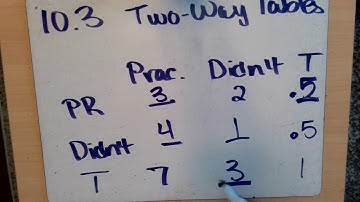 10.3 Two-Way Tables
Prac. Didn't T
PR 3 2 .5
Didn't 4 1 .5
T 7 3 1